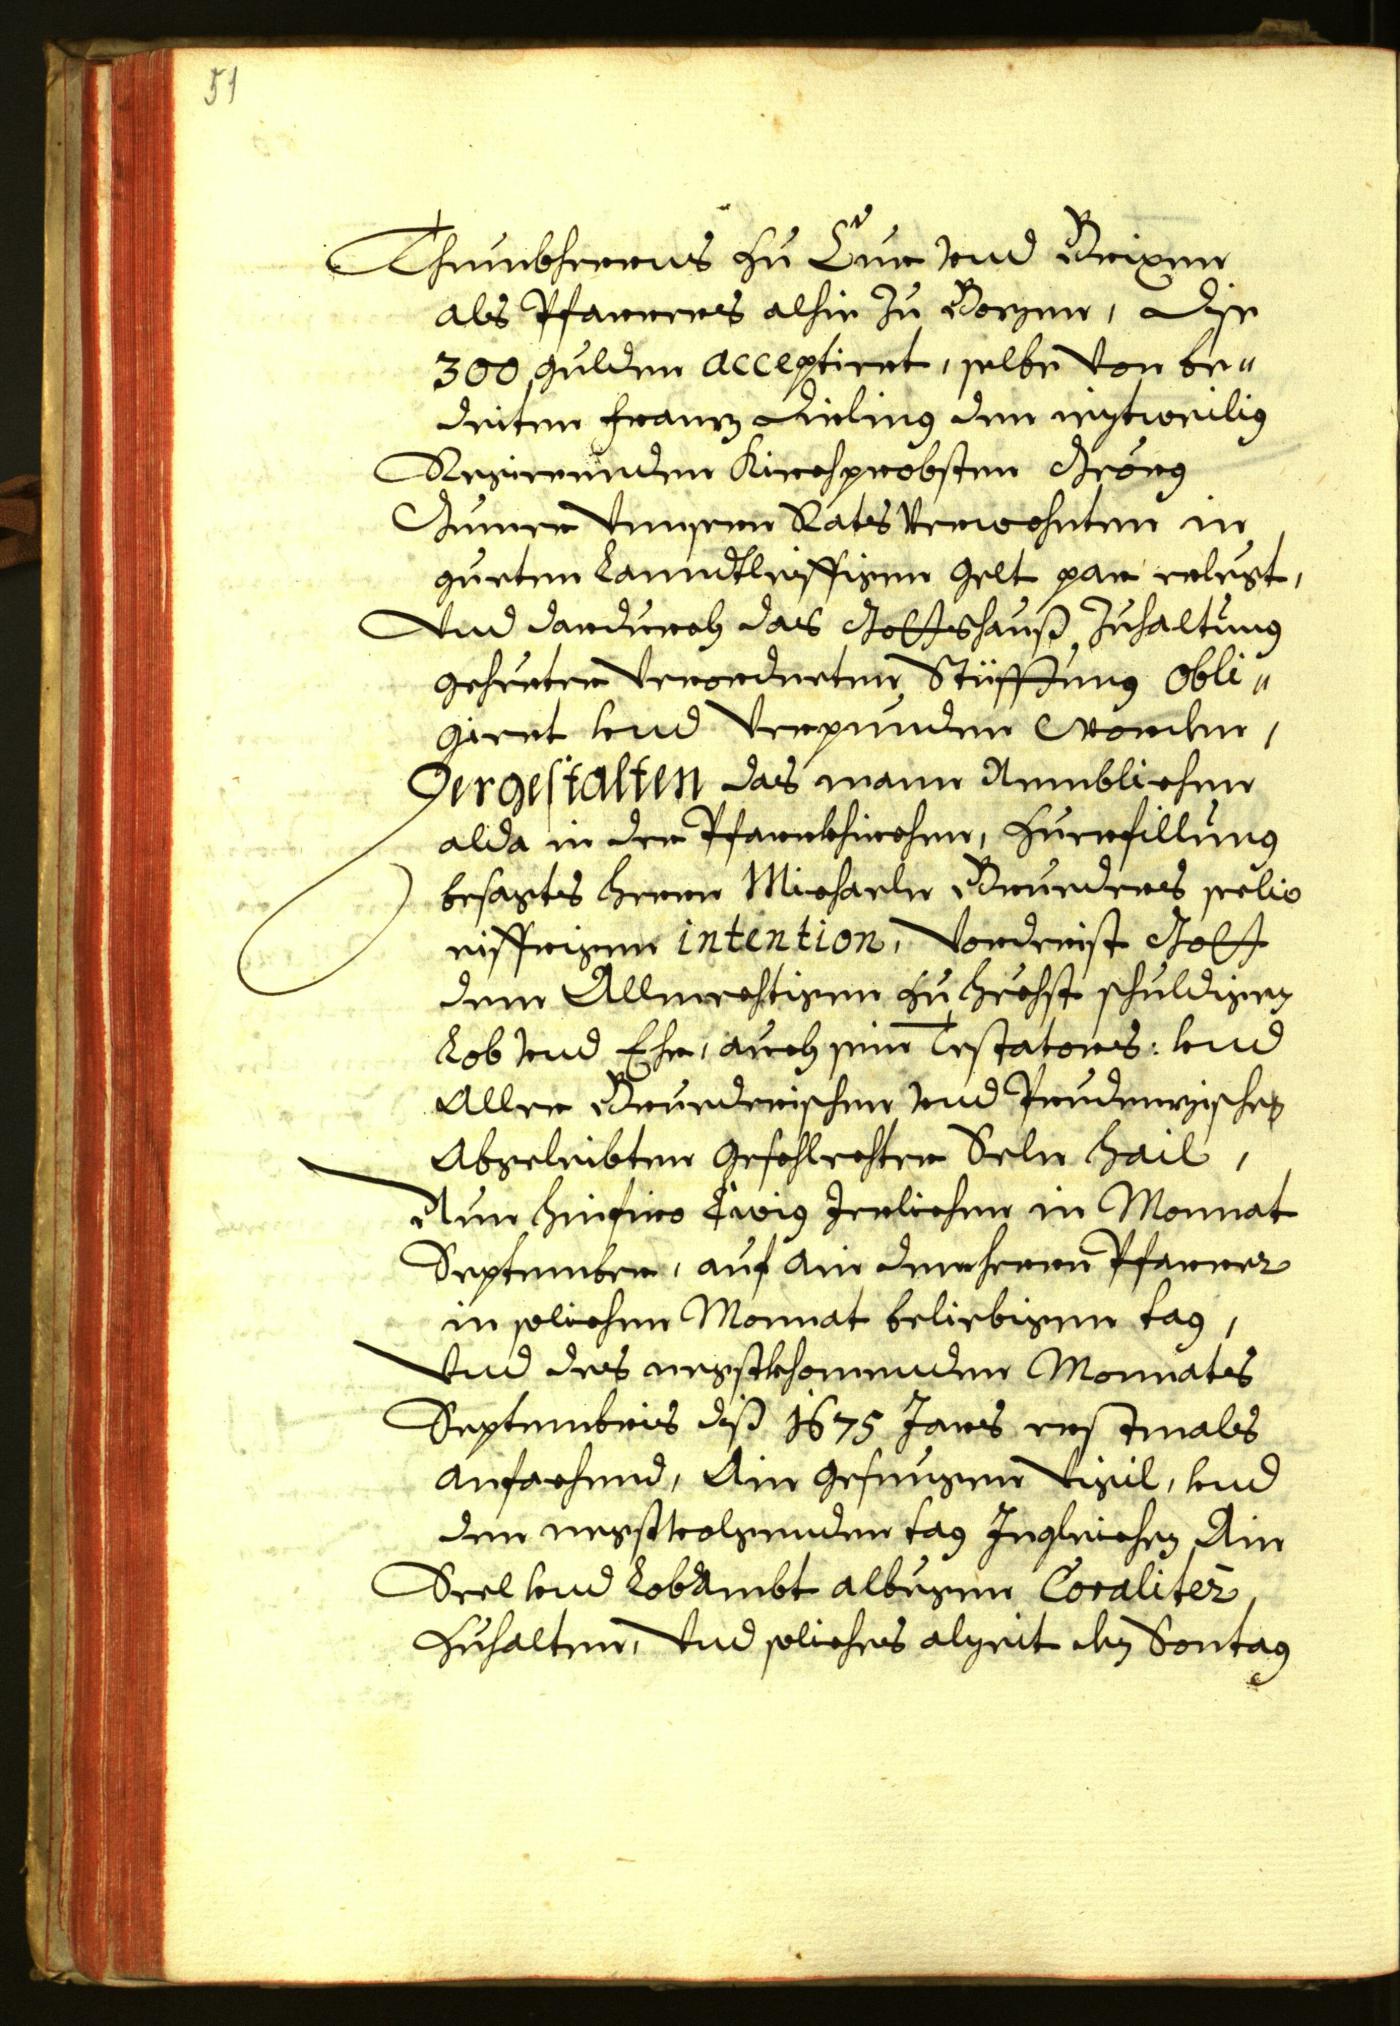 51
Thumbherrns zu Chur vnd Brixen
als Pfarrers alhie zu Bozen, die
300 gulden acceptiert, selbe von be„
deiten Franz dem iezweilig
Regierenden Kirchprobsten Geörg
vnnsern Rats Verwohnten in
gueten Lanndtleiffigen gelt par erlegt,
Vnd dardurch das Gottshauß zuhaltung
geherter verordneten Stüfftung obli„
giert vnd verpunden worden,
Dergestalten das mann Nemblichen
alda in der Pfarrkhirchen, zuerfillung
besagts herrn Michaeln seelig
eiffrigen intention, Vorderist Gott
dem Allmechtigen zu hechst schuldigen
Lob vnd Ehr, auch sein Testators: vnd
Aller vnd
Abgeleibten geschlechter Seeln Hail,
Nun hinfiro Ewig Jerlichen in Monnat
September, auf ain dem herrn Pfarrer
in solichen Monnat beliebigen tag,
Vnd des negstkhomenden Monnats
Septembris diß 1675 Jars erstmals
anfachend, Ain gesungen Vigil, vnd
den negstvolgenden tag Ingleichen Ain
Seel vnd LobAmbt alwegen Coraliter
zuhalten, Vnd soliches alzeit den Sontag